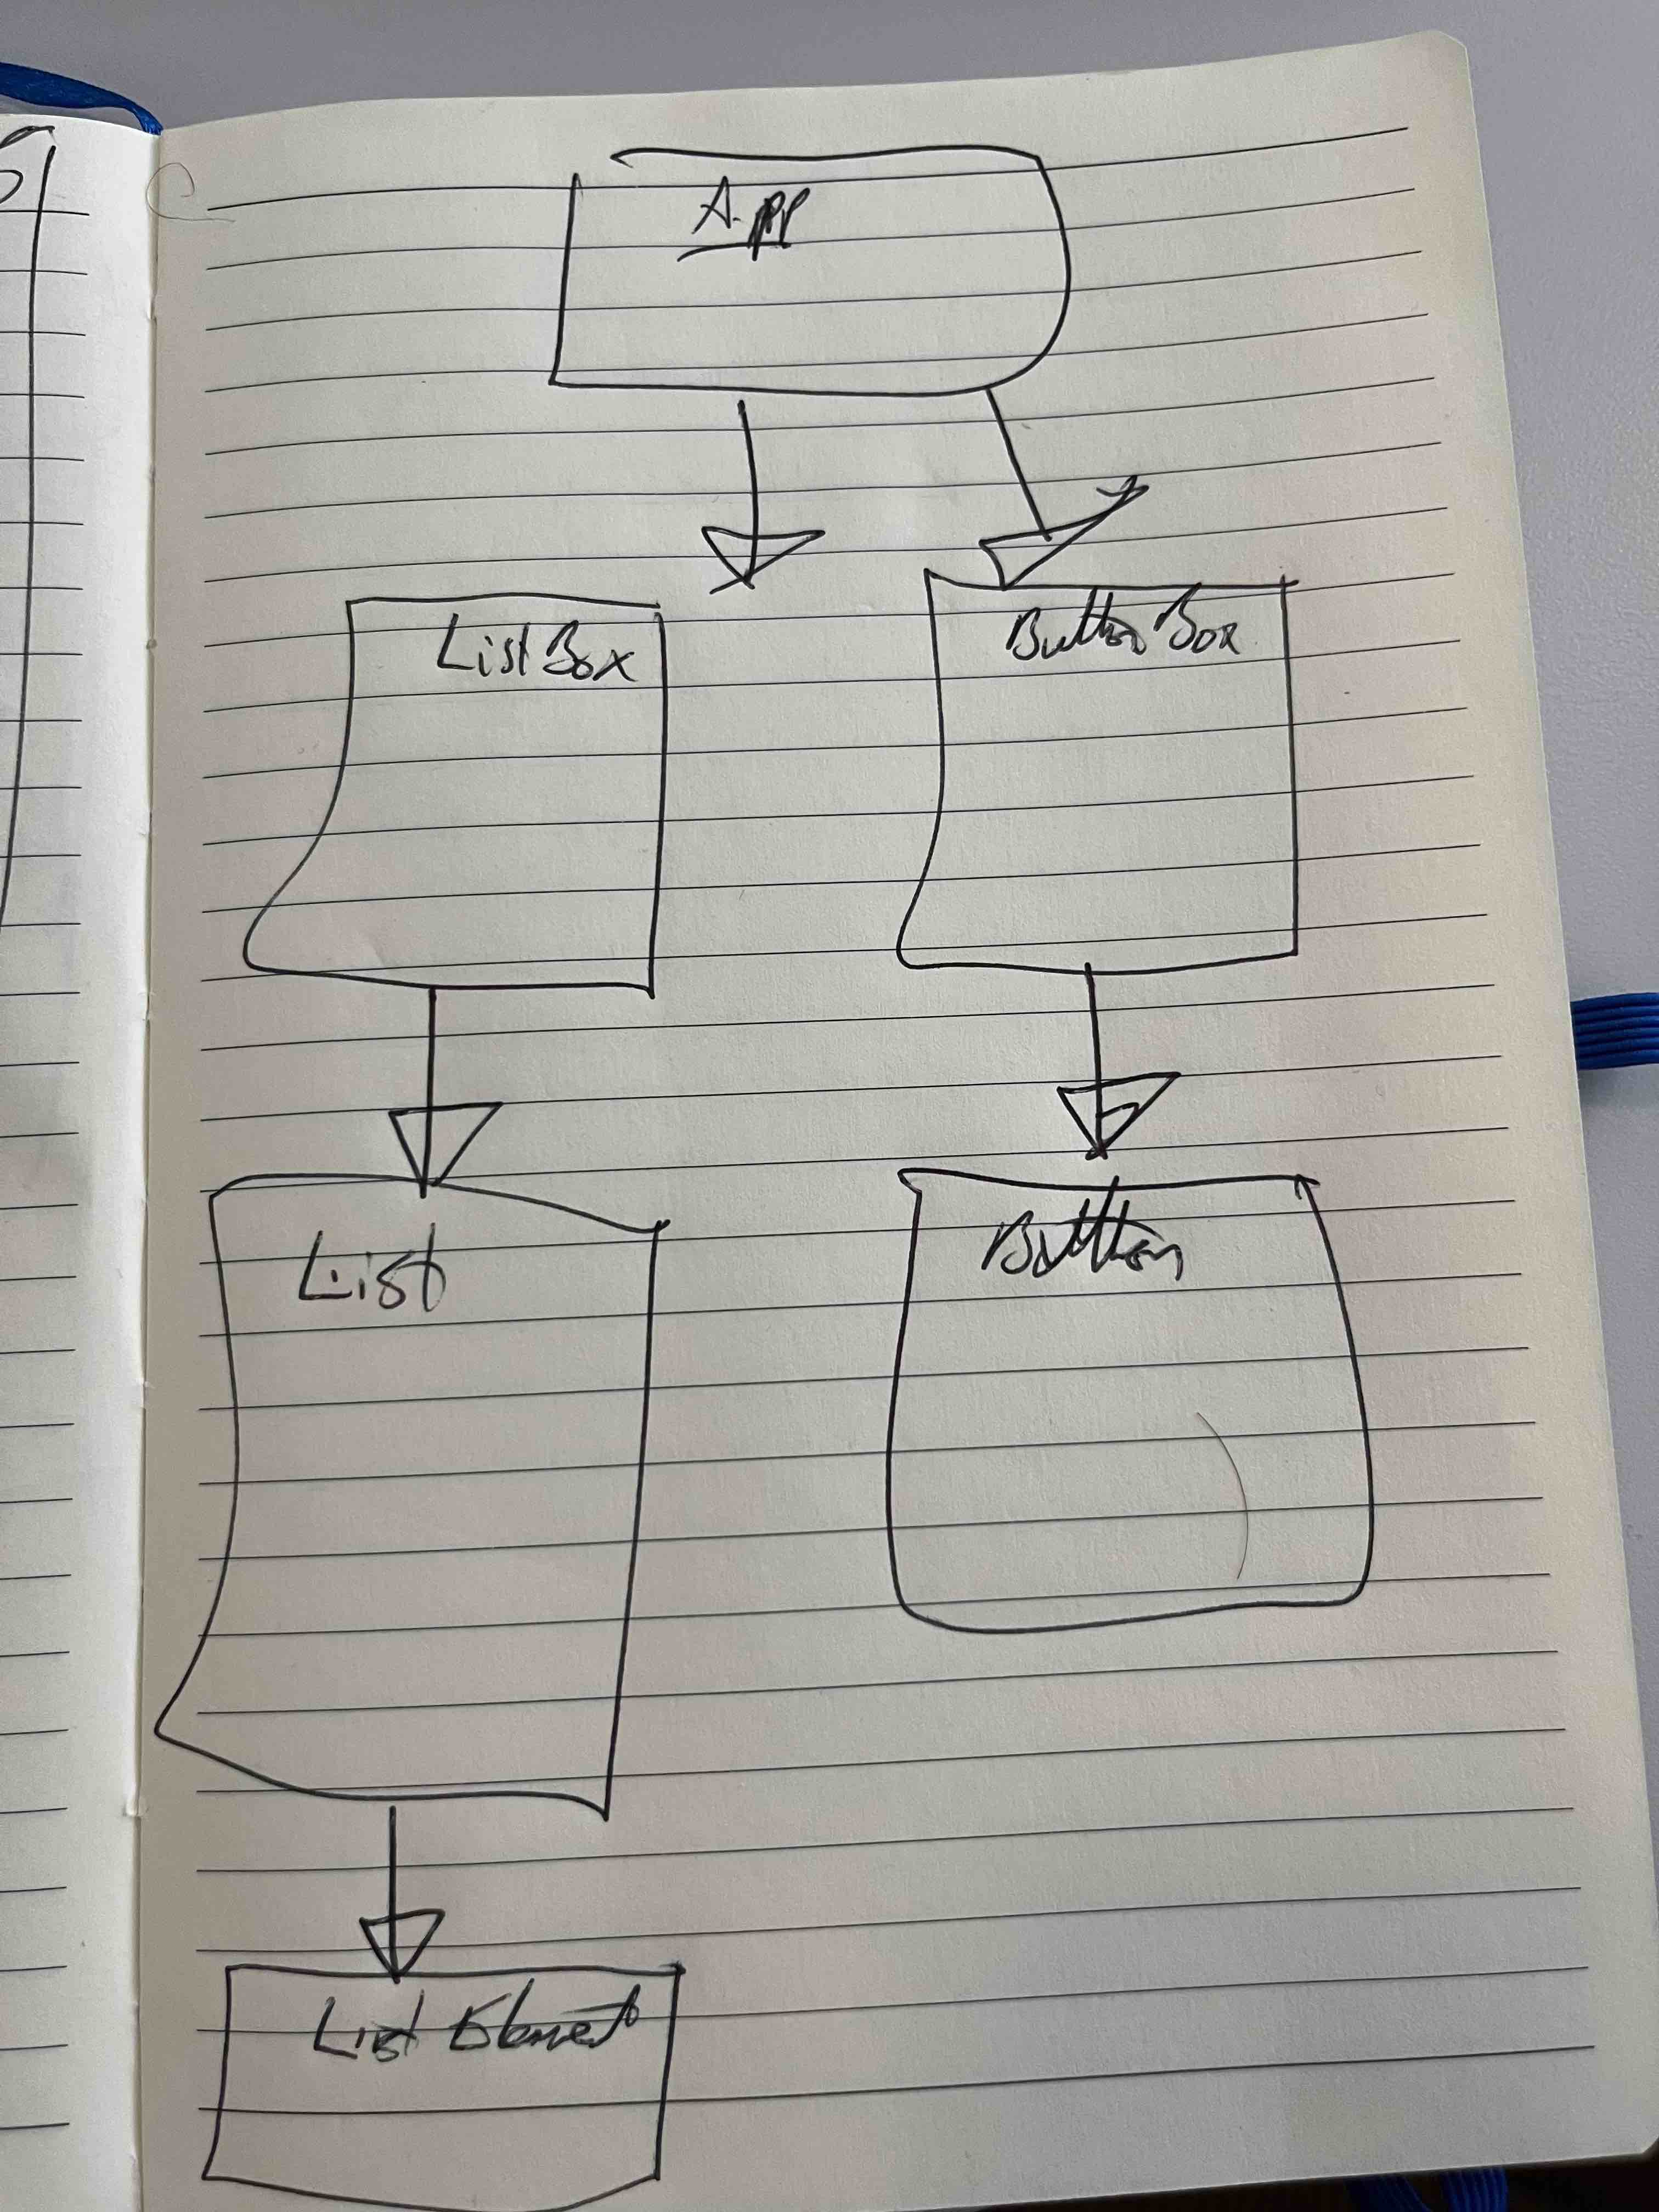 App
ListBox
ButtonBox
List
Button
List Element